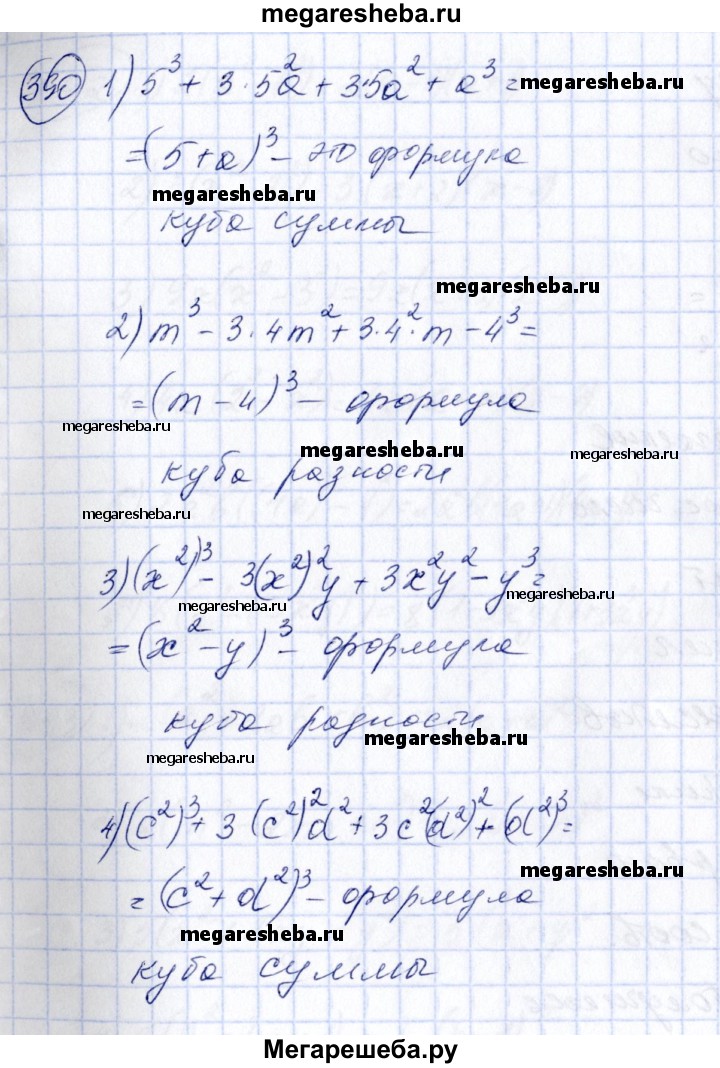 megaresheba.ru
390 1) 5³ + 3·5a² + 3·5a² + a³ = megaresheba.ru
= (5+a)³ – это формула
megaresheba.ru
куба суммы
megaresheba.ru
2) m³ – 3·4m² + 3·4²·m – 4³ =
= (m – 4)³ – формула
megaresheba.ru
megaresheba.ru
megaresheba.ru
куба разности
megaresheba.ru
3) (x²)³ – 3(x²)²y + 3x²y² – y³ =
megaresheba.ru
megaresheba.ru
= (x² – y)³ – формула
куба разности
megaresheba.ru
megaresheba.ru
4) (c²)³ + 3(c²)²d² + 3c²(d²)² + (d²)³ =
megaresheba.ru
= (c² + d²)³ – формула
megaresheba.ru
куба суммы
Мегарешеба.ру